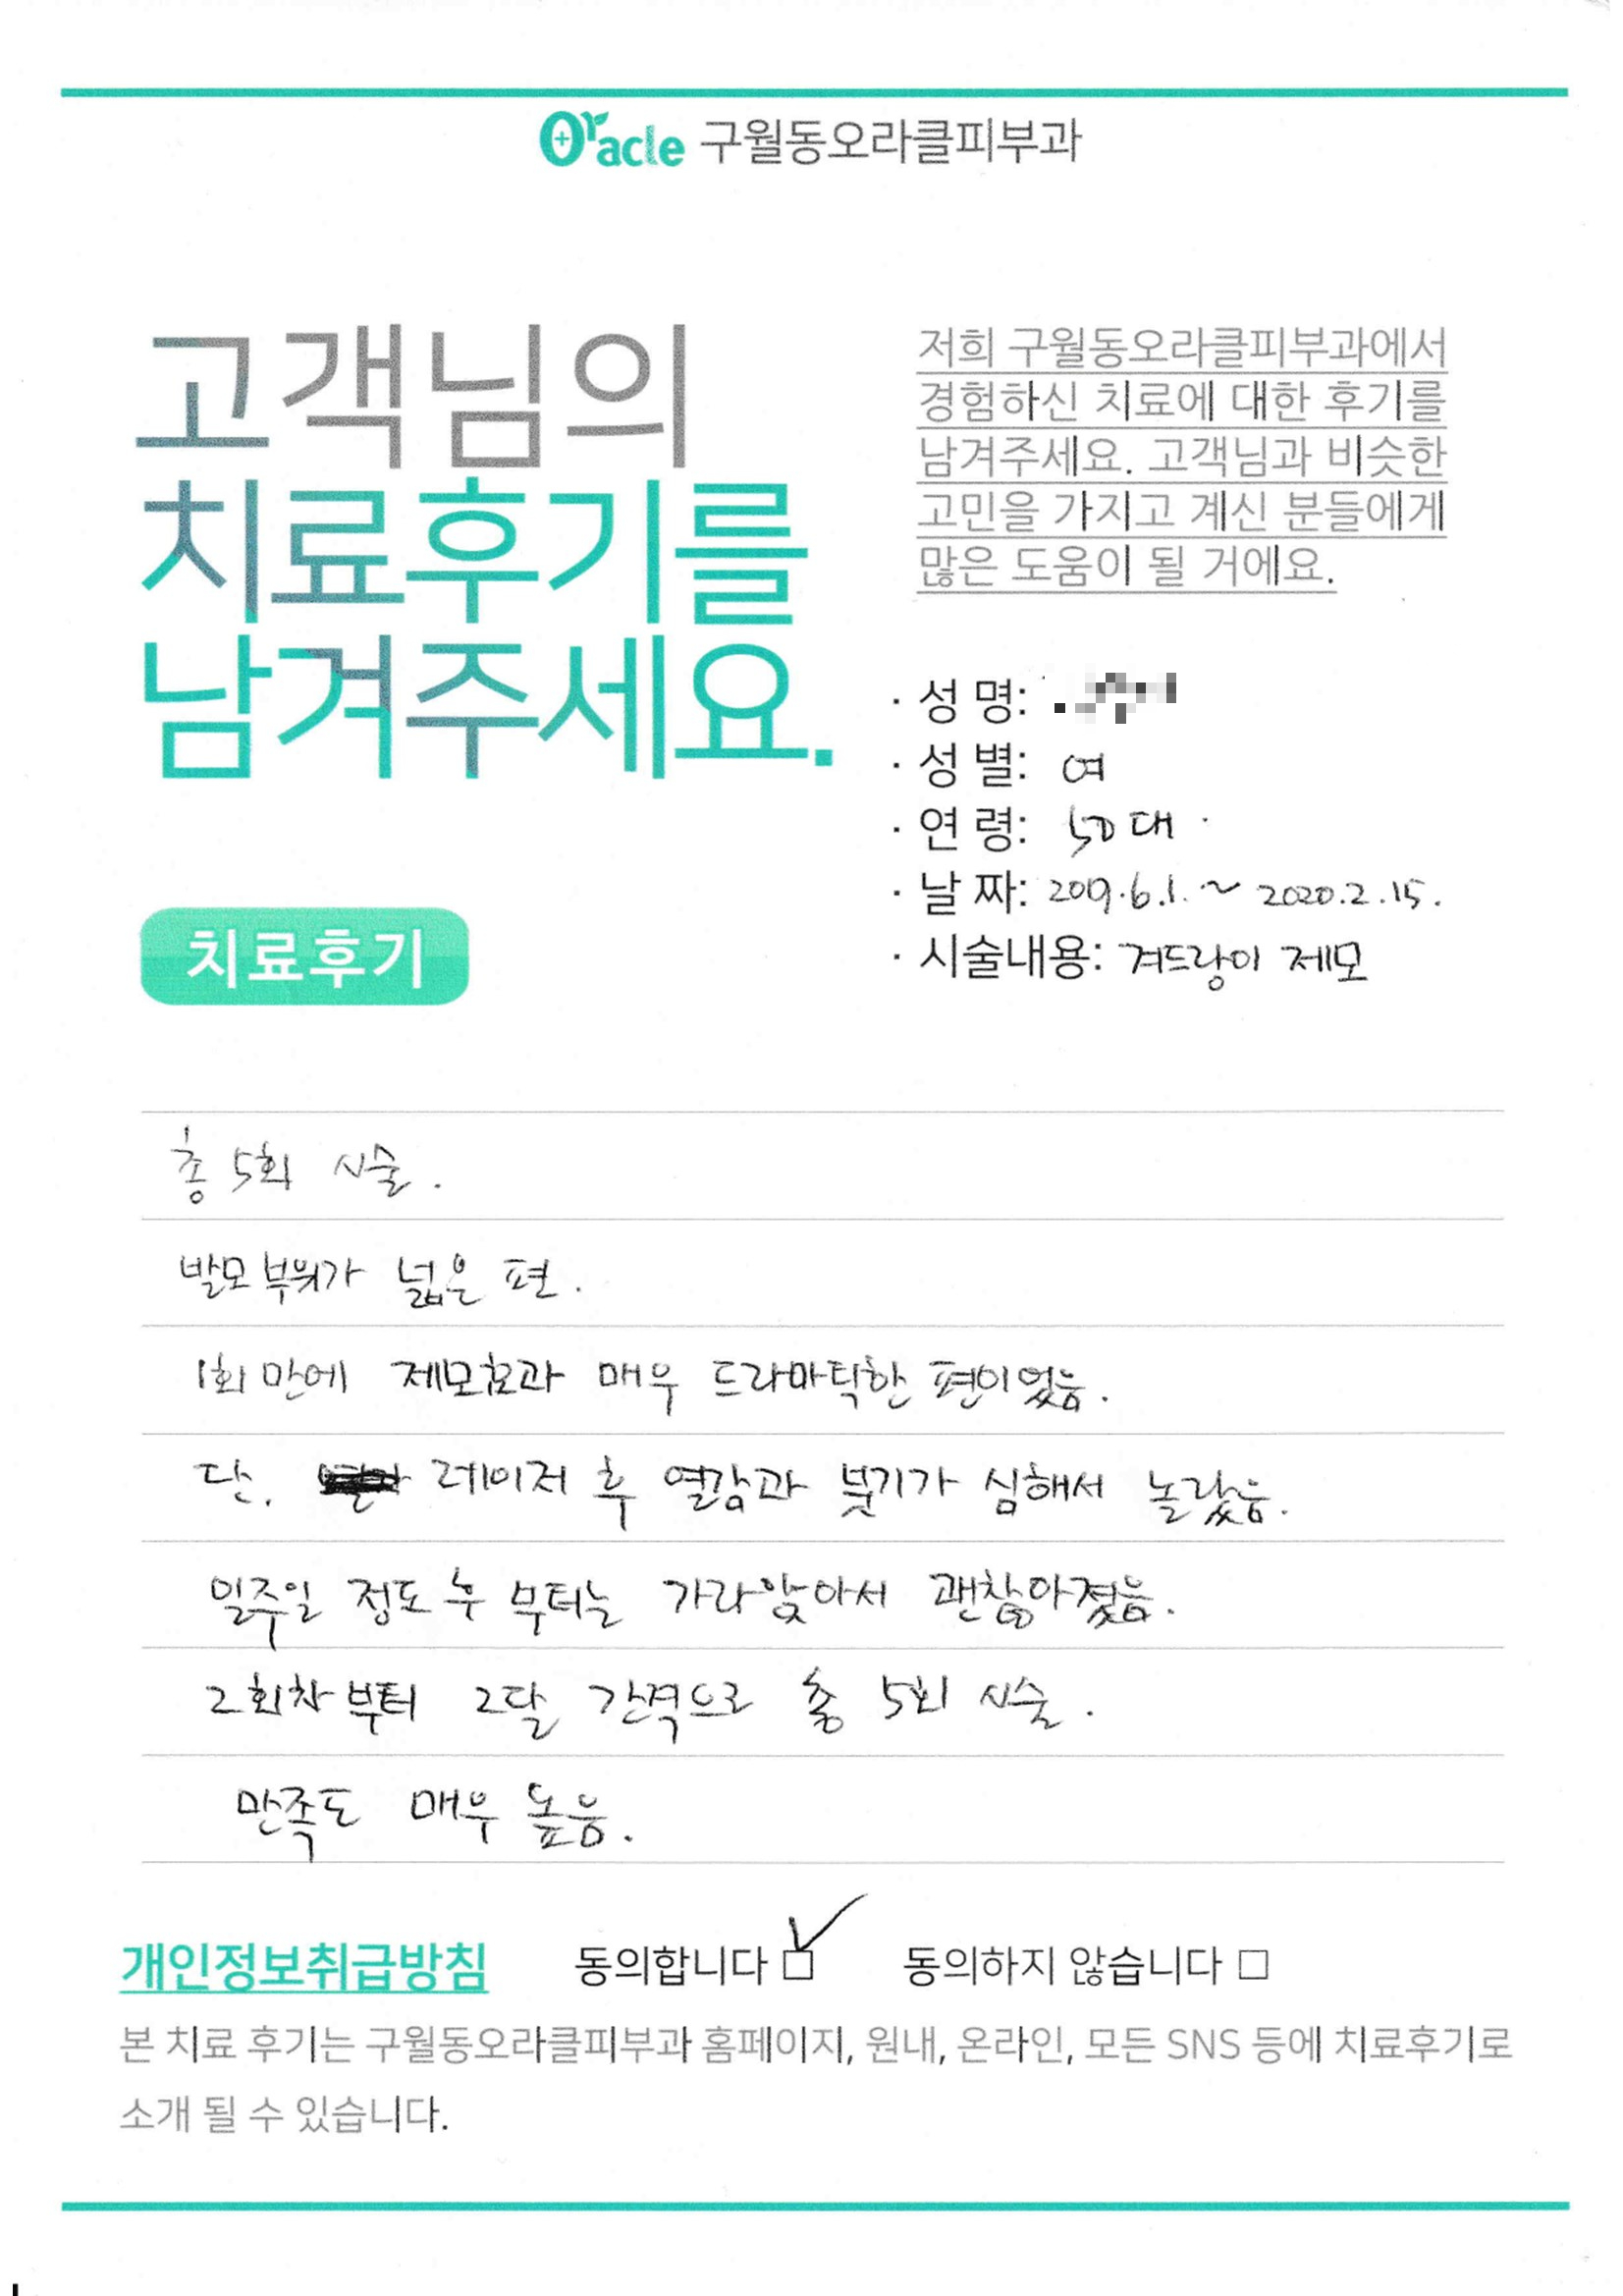 Oracle 구월동오라클피부과
고객님의
치료후기를
남겨주세요.
저희 구월동오라클피부과에서
경험하신 치료에 대한 후기를
남겨주세요. 고객님과 비슷한
고민을 가지고 계신 분들에게
많은 도움이 될 거에요.
· 성 명:
· 성 별: 여
· 연 령: 50대
· 날 짜: 2019.6.1. ~ 2020.2.15.
· 시술내용: 겨드랑이 제모
치료후기
총 5회 시술.
발모부위가 넓은 편.
1회만에 제모효과 매우 드라마틱한 편이었음.
단, 레이저 후 열감과 붓기가 심해서 놀랐음.
일주일 정도 후 부터는 가라앉아서 괜찮아졌음.
2회차부터 2달 간격으로 총 5회 시술.
만족도 매우 높음.
개인정보취급방침 동의합니다 동의하지 않습니다
본 치료 후기는 구월동오라클피부과 홈페이지, 원내, 온라인, 모든 SNS 등에 치료후기로
소개 될 수 있습니다.